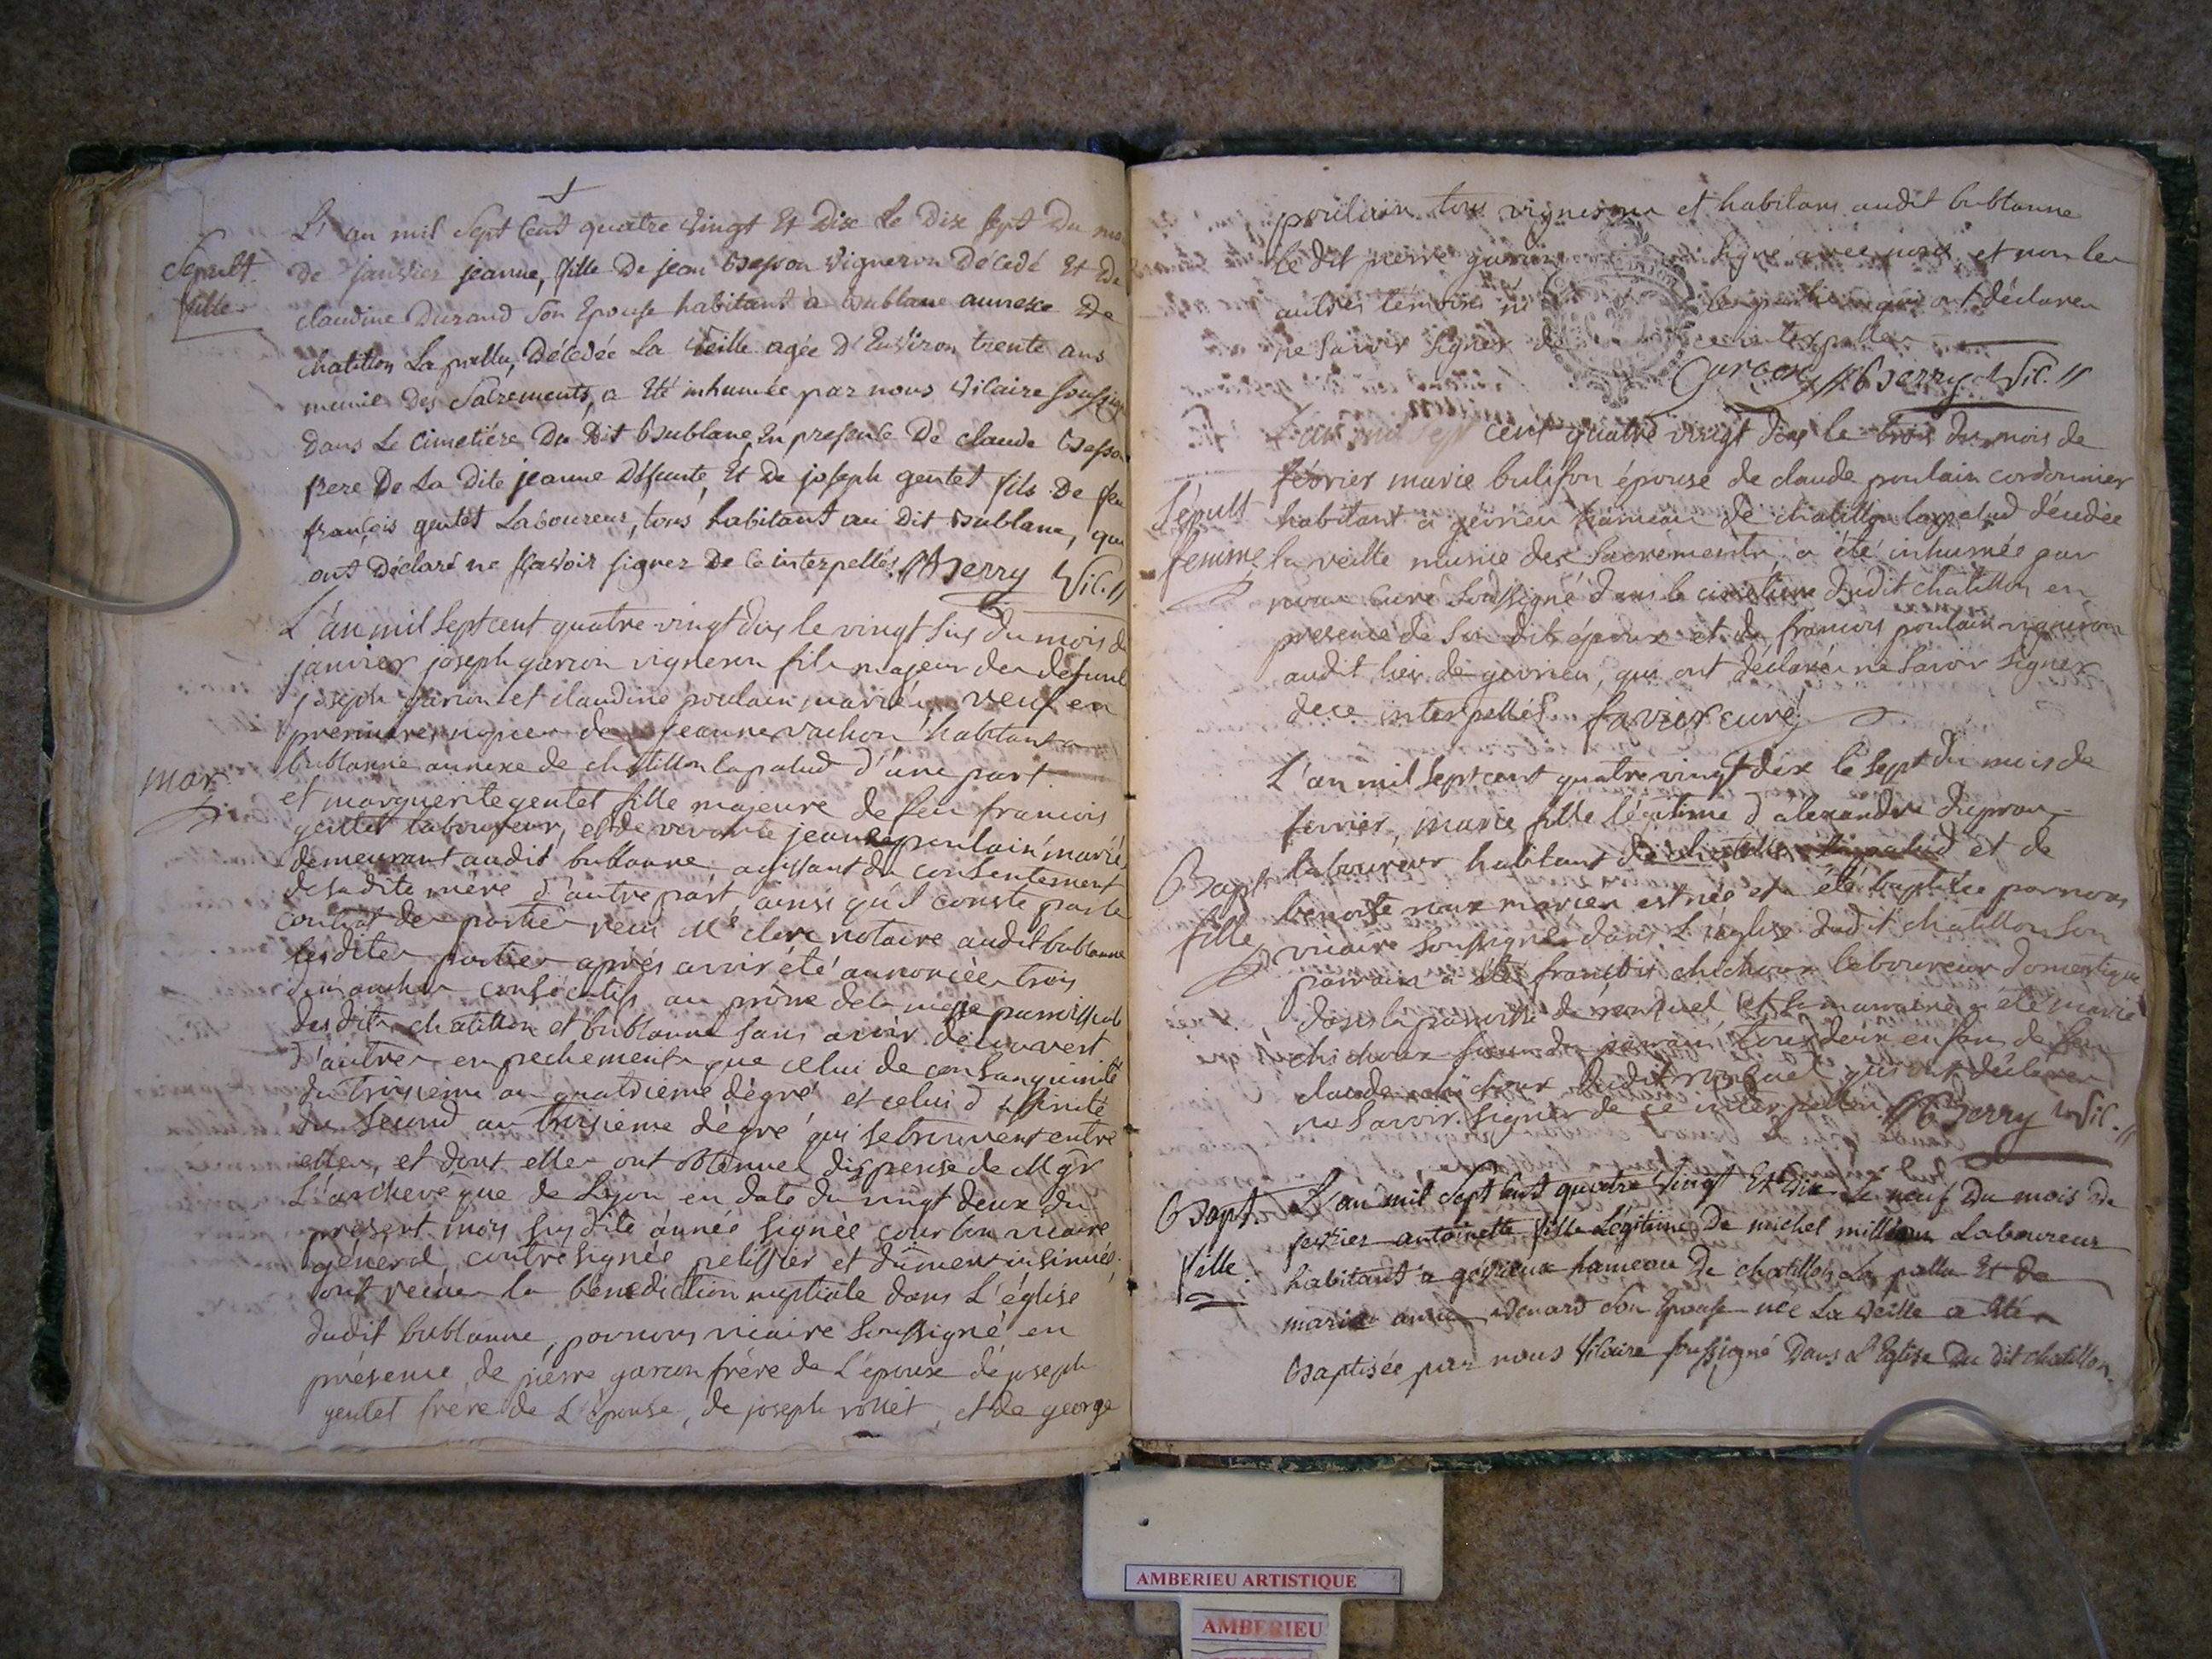 L'an mil Sept Cent quatre vingt Et Dix Le Dix Sept Du mo
Sepult. de janvier jeanne, fille De jean Besson vigneron Décedé Et De
fille claudine Durand Son Epouse habitant à Bublane annexe De
chatillon La pallu, Décedée La veille agée D'Environ trente ans
munie Des Sacrements, a Eté inhumée par nous vicaire soussigné
Dans Le Cimetière Du Dit Bublane, En presence De claude Besson
frere De La Dite jeanne Deffunte, Et De joseph gentet fils De feu
françois gentet Laboureur, tous habitant au Dit Bublane, qui
ont Déclaré ne sçavoir signer De Ce interpellés. Berry Vic.
L'an mil Sept cent quatre vingt dix le vingt six du mois de
janvier joseph garcon vigneron fils majeur des defunt
joseph garcon et claudine poulain mariés, veuf en
premieres noces de jeanne vachon habitant a
bublanne annexe de chatillon lapalud d'une part
mar. et marguerite gentet fille majeure de feu francois
gentet laboureur, et de vivante jeanne poulain mariés,
demeurant audit bublanne agissant du consentement
de sadite mère d'autre part, ainsi qu'il conste par le
contrat des parties recu Me clerc notaire audit bublanne
lesdites parties après avoir été annoncées trois
dimanches consécutifs au prône de la messe paroissiale
desdits chatillon et bublanne sans avoir découvert
d'autres empechements que celui de consanguinité
du troisieme au quatrieme dégré et celui d'affinité
du second au troisieme dégré qui se trouvent entre
elles, et dont elles ont obtenue dispense de Mgr
L'archevêque de Lyon en date du vingt deux du
present mois susdite année signée courbon vicaire
général, contresignée pelissier et dûment insinuée.
ont recues la bénédiction nuptiale dans L'église
dudit bublanne, par nous vicaire soussigné en
présence de pierre garcon frère de L'époux de joseph
gentet frère de L'épouse, de joseph rollet, et de george
poulain tous vignerons et habitans audit bublanne
le dit pierre garcon signé avec nous et non les
autres temoins ni les parties qui ont déclarer
ne savoir signer de ce interpellés
Garcon Berry Vic.
L'an mil sept cent quatre vingt dix le trois du mois de
février marie bulifon épouse de claude poulain cordonnier
Sépult habitant à gévrieu hameau de chatillon lapalud décédée
femme. la veille munie des Sacrements, a été inhumée par
nous curé soussigné dans le cimetiere dudit chatillon en
presence de son dit époux et de francois poulain vigneron
audit lieu de gevrieu, qui ont déclarés ne savoir signer
de ce interpellés. favier curé
L'an mil sept cent quatre vingt dix le sept du mois de
fevrier, marie fille légitime d'alexandre
Bapt laboureur habitant de chatillon lapalud et de
benoite roux mariés est née et a été baptisée par nous
fille vicaire soussigné dans L'église dudit chatillon son
parrain a été francois chichoux laboureur domestique
dans la paroisse de et la marraine a été marie
chichoux soeur du parrain, tous deux enfans de feu
claude chichoux dudit qui ont déclarer
ne savoir signer de ce interpellés Berry Vic.
Bapt. L'an mil Sept Cent quatre vingt Et Dix Le neuf Du mois De
fevrier antoinette fille Légitime De michel millieu Laboureur
fille. habitant a gevrieux hameau De chatillon La pallu Et De
marie Son Epouse née La veille a Eté
Baptisée par nous Vicaire soussigné Dans L'Eglise Du Dit chatillon.
AMBERIEU ARTISTIQUE
AMBERIEU